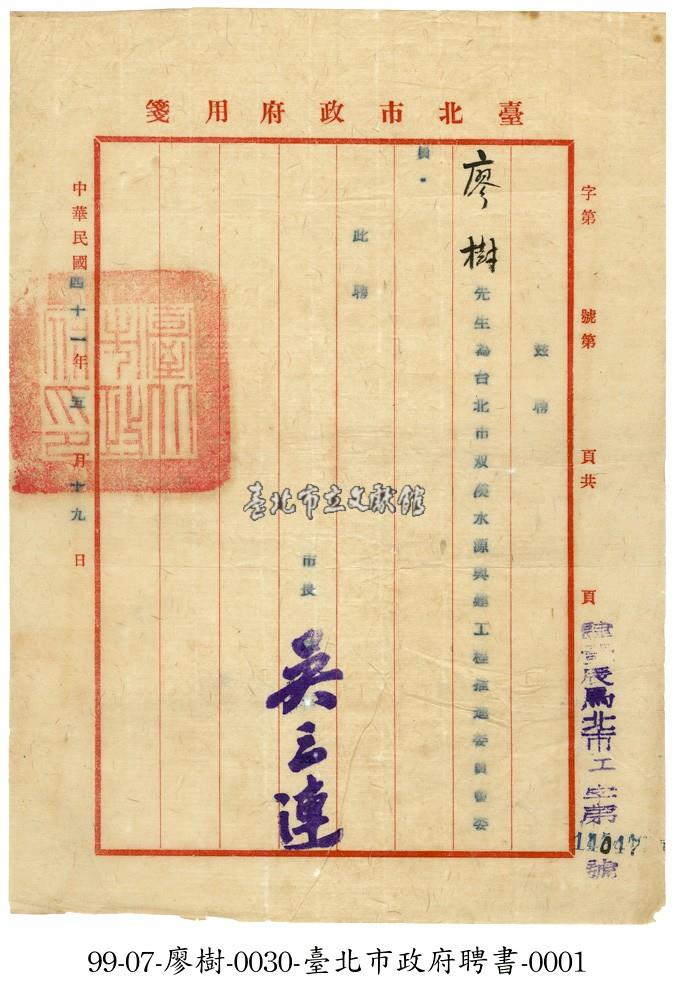 臺北市政府用箋
字第　號第　頁共　頁
北市工字第11047號
茲聘
廖樹先生為台北市双溪水源興建工程推進委員會委
員。
此聘
市長 吳三連
中華民國四十一年五月十九日
臺北市政府印
臺北市立文獻館
99-07-廖樹-0030-臺北市政府聘書-0001